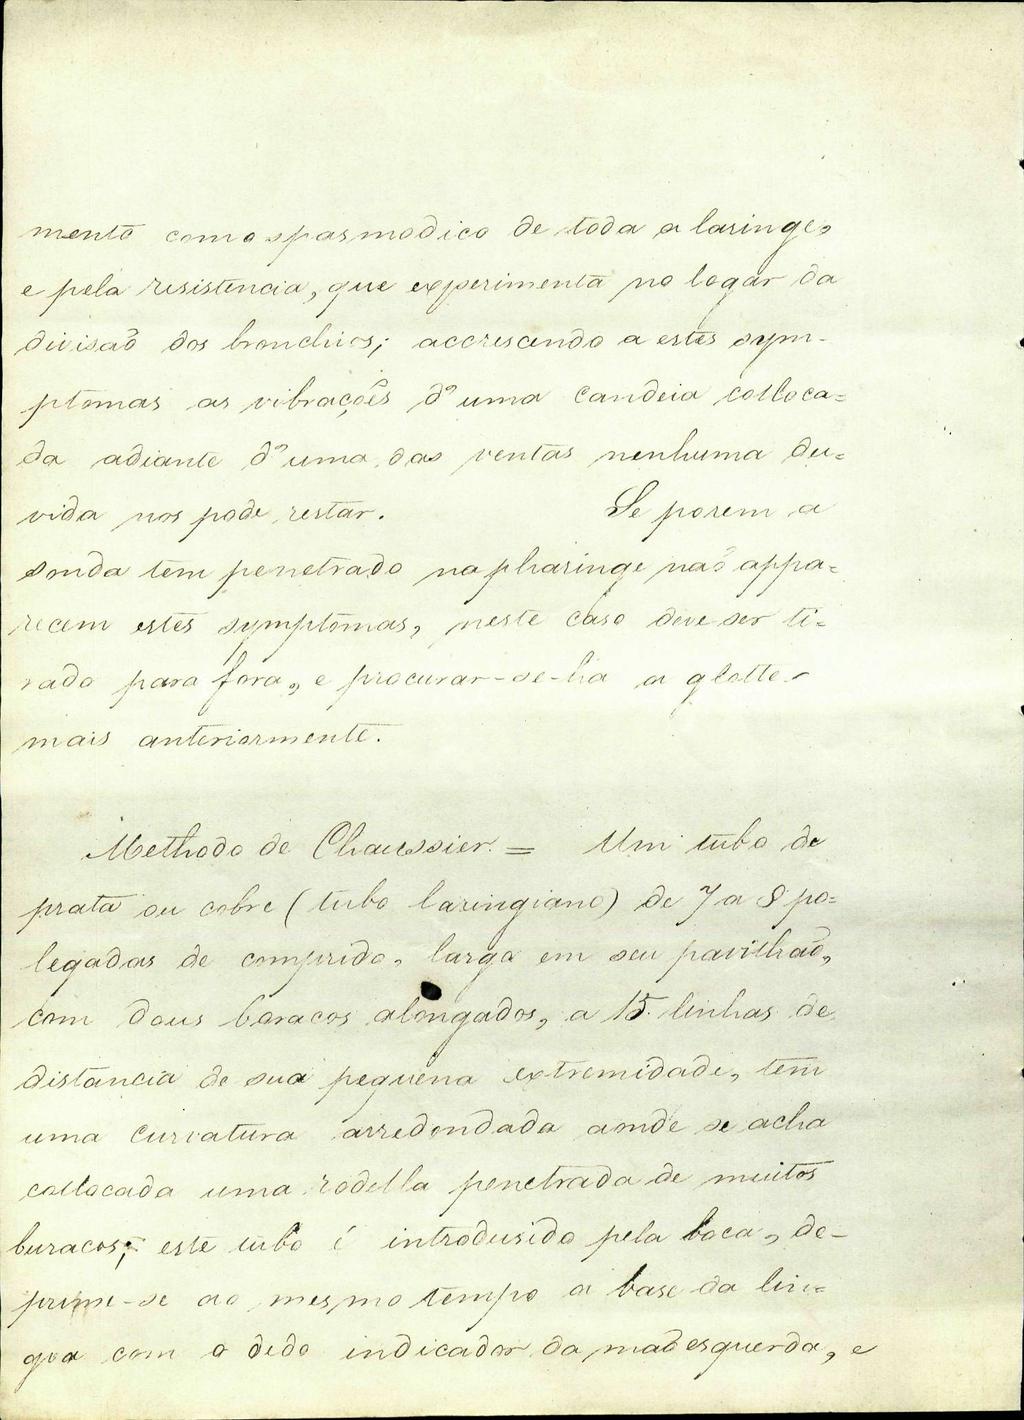 mento como spasmodico de toda a laringe,
e pela resistencia, que experimenta no logar da
divisaõ dos bronchios; accrescendo a estes sym-
ptomas as vibraçoẽs d'uma candeia colloca=
da adiante d'uma das ventas nenhuma du=
vida nos pode restar. Se porem a
sonda tem penetrado na pharinge naõ appa=
recem estes symptomas, neste caso deve ser ti=
rado para fora, e procurar-se-ha a glotte
mais anteriormente.
Methodo de Chaussier. = Um tubo de
prata ou cobre (tubo laringiano) de 7 a 8 po=
legadas de comprido, largo em seu pavilhaõ,
com dous boracos alongados, a 15 linhas de
distancia de sua pequena extremidade, tem
uma curvatura arredondada aonde se acha
collocada uma rodella penetrada de muitos
buracos; este tubo é introdusido pela boca, de-
prime-se ao mesmo tempo a base da lin=
goa com o dedo indicador da maõ esquerda, e